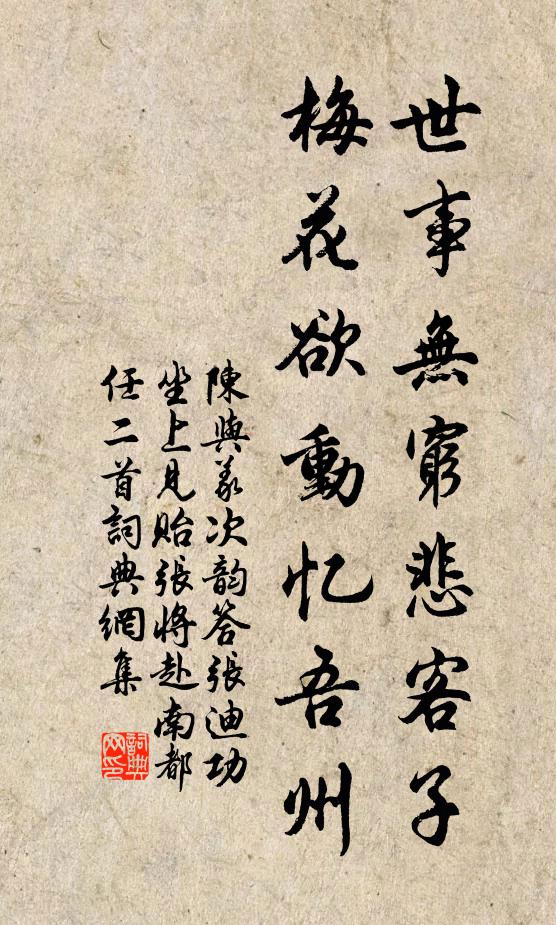 世事無窮悲客子
梅花欲動忆吾州
陳與義次韵答張迪功
坐上見貽張將赴南都
任二首詞典網集
詞典
网印